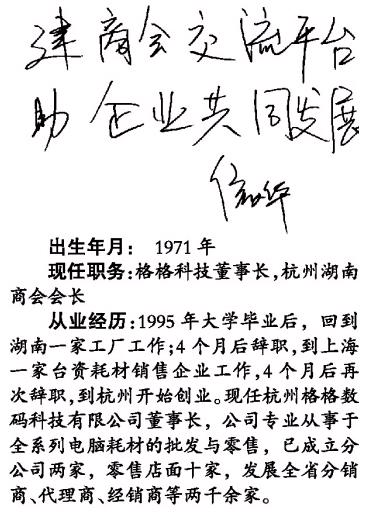 建商会交流平台
助企业共同发展
出生年月： 1971 年
现任职务：格格科技董事长，杭州湖南
商会会长
从业经历：1995 年大学毕业后，回到
湖南一家工厂工作；4 个月后辞职，到上海
一家台资耗材销售企业工作，4 个月后再
次辞职，到杭州开始创业。现任杭州格格数
码科技有限公司董事长，公司专业从事于
全系列电脑耗材的批发与零售，已成立分
公司两家，零售店面十家，发展全省分销
商、代理商、经销商等两千余家。